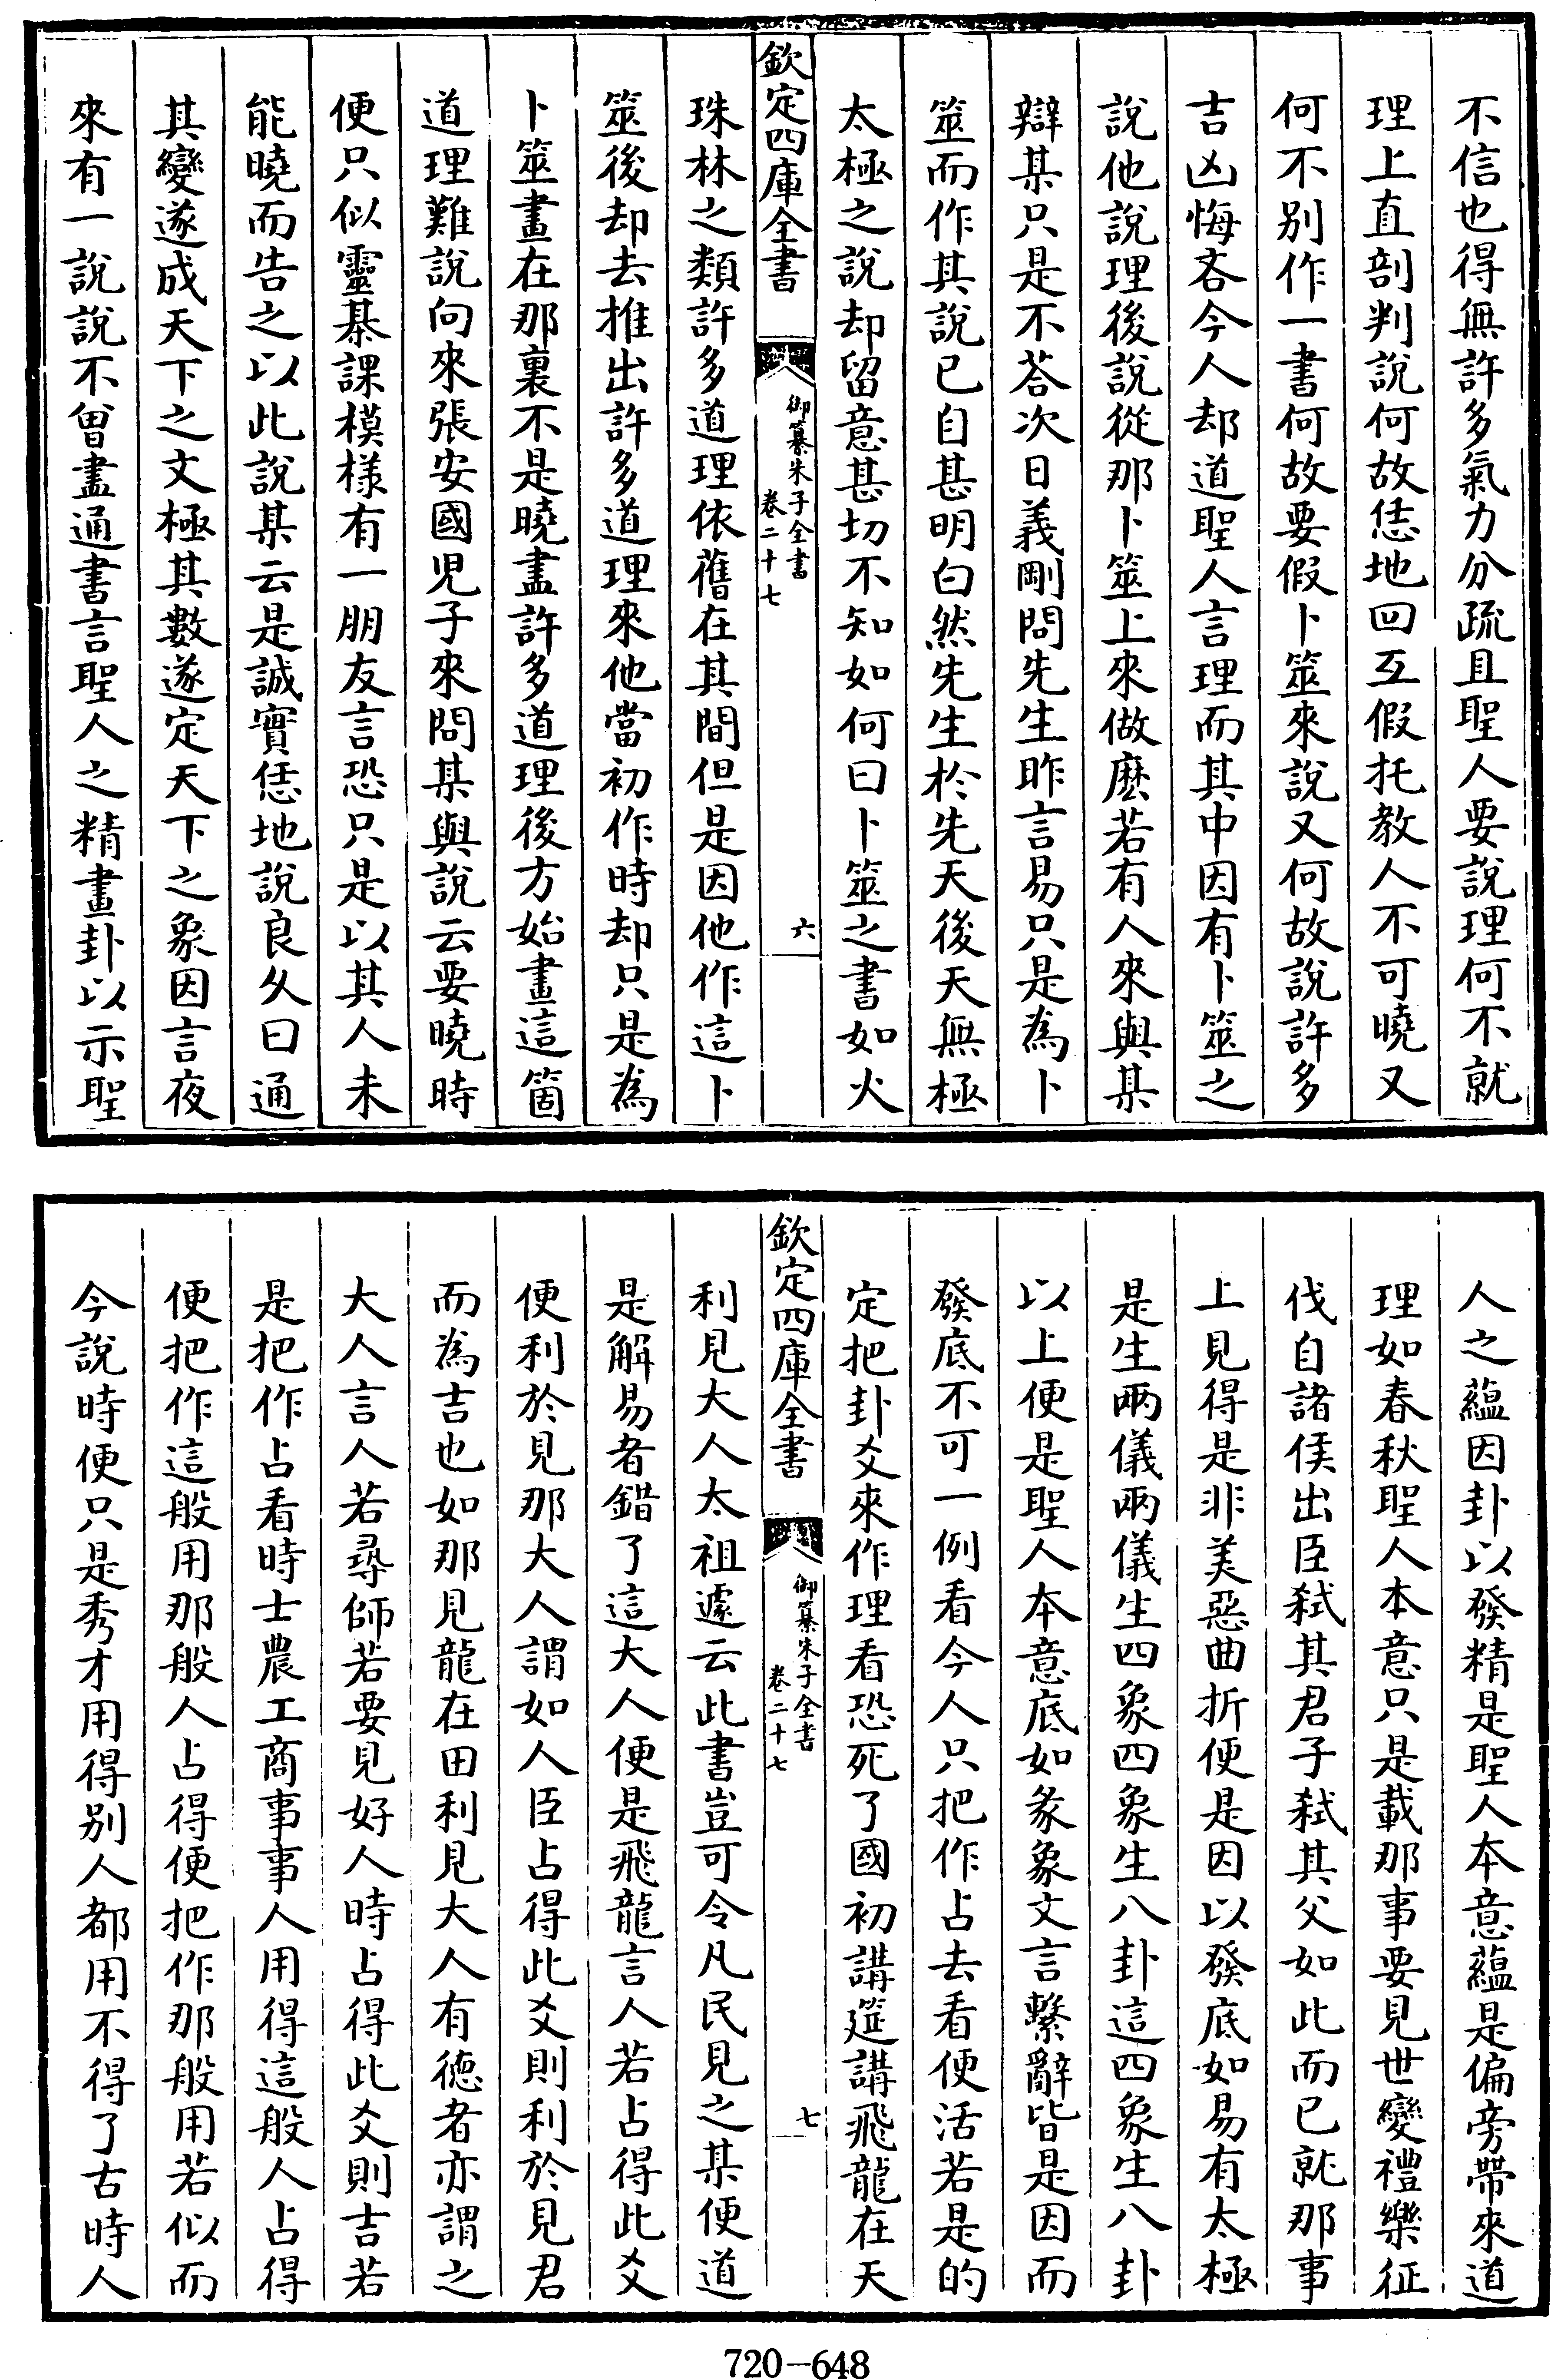 不信也得無許多氣力分疏且聖人要說理何不就
理上直剖判說何故恁地回互假托教人不可曉又
何不別作一書何故要假卜筮來說又何故說許多
吉凶悔吝今人却道聖人言理而其中因有卜筮之
說他說理後說從那卜筮上來做麽若有人來與某
辯某只是不荅次日義剛問先生昨言易只是為卜
筮而作其說已自甚明白然先生於先天後天無極
太極之說却留意甚切不知如何曰卜筮之書如火
欽定四庫全書
御纂朱子全書
卷二十七
六
珠林之類許多道理依舊在其間但是因他作這卜
筮後却去推出許多道理來他當初作時却只是為
卜筮畫在那裏不是曉盡許多道理後方始畫這箇
道理難說向來張安國兒子來問某與說云要曉時
便只似靈棊課模樣有一朋友言恐只是以其人未
能曉而告之以此說某云是誠實恁地說良久曰通
其變遂成天下之文極其數遂定天下之象因言夜
來有一說說不曾盡通書言聖人之精畫卦以示聖
人之蘊因卦以發精是聖人本意蘊是偏旁帶來道
理如春秋聖人本意只是載那事要見世變禮樂征
伐自諸侯出臣弑其君子弑其父如此而已就那事
上見得是非美惡曲折便是因以發底如易有太極
是生兩儀兩儀生四象四象生八卦這四象生八卦
以上便是聖人本意底如彖象文言繫辭皆是因而
發底不可一例看今人只把作占去看便活若是的
定把卦爻來作理看恐死了國初講筵講飛龍在天
欽定四庫全書
御纂朱子全書
卷二十七
七
利見大人太祖遽云此書豈可令凡民見之某便道
是解易者錯了這大人便是飛龍言人若占得此爻
便利於見那大人謂如人臣占得此爻則利於見君
而為吉也如那見龍在田利見大人有德者亦謂之
大人言人若尋師若要見好人時占得此爻則吉若
是把作占看時士農工商事事人用得這般人占得
便把作這般用那般人占得便把作那般用若似而
今說時便只是秀才用得別人都用不得了古時人
720-648